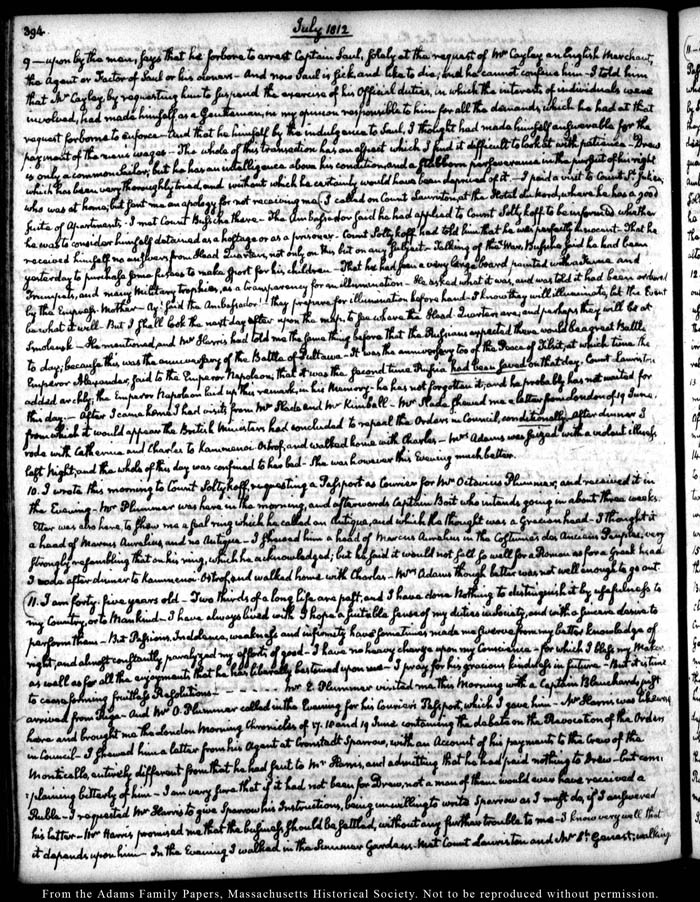 394.
July 1812
9 — upon by the man, says that he forbore to arrest Captain Saul, solely at the request of Mr Cayley an English Merchant,
the Agent or Factor of Saul or his owners — And now Saul is sick, and like to die, and he cannot confine him — I told him
that Mr Cayley, by requesting him to suspend the exercise of his Official duties, in which the interests of individuals were
involved, had made himself as a Gentleman, in my opinion responsible to him for all the demands, which he had at that
request forborne to enforce — And that he himself by the indulgence to Saul, I thought had made himself answerable for the
payment of the mens wages — The whole of this transaction has an aspect which I find it difficult to look at with patience — Drew
is only a common sailor; but he has an intelligence above his condition, and a stubborn perseverance in the pursuit of his right
which has been very thoroughly tried, and without which he certainly would have been deprived of it — I paid a visit to Count St. Julien,
who was at home, but sent me an apology for not receiving me. I called on Count Lauriston, at the Hotel du Nord, where he has a good
suite of Apartments — I met Count Bussche there — The Ambassador said he had applied to Count Soltykoff to be informed whether
he was to consider himself detained as a hostage or as a prisoner — Count Soltykoff had told him that he was perfectly innocent — That he
received himself no answers from Head Quarters, not only on this but on any subject — Talking of the War, Bussche said he had been
yesterday to purchase some fusees to make sport for his children — That he had seen a very large board, painted with a Fame and
Trumpets, and many Military trophies, as a transparency for an illumination — He asked what it was, and was told it had been ordered
by the Empress Mother — Ay! said the Ambassador! they prepare for illumination before hand — I know they will illuminate, let the Event
be what it will — But I shall look the next day after upon the map, to see where the Head Quarters are, and perhaps they will be at
Smolensk — He mentioned, and Mr Harris had told me the same thing before that the Russians expected there would be a great Battle
to day; because this was the anniversary of the Battle of Pultawa — It was the anniversary too of the Peace of Tilsit, at which time the
Emperor Alexander, said to the Emperor Napoleon, that it was the second time Russia had been saved on that day. Count Lauriston
added archly; the Emperor Napoleon laid up this remark, in his Memory — he has not forgotten it; and he probably has not waited for
this day — After I came home, I had visits from Mr Slade and Mr Kimball — Mr Slade shewed me a letter from London of 19 June.
from which it would appear the British Ministers had concluded to repeal the Orders in Council, conditionally. After dinner I
rode with Catherine and Charles to Kammenoi Ostrof, and walked home with Charles — Mrs Adams was seized with a violent illness
last Night, and the whole of this day was confined to her bed — She was however this Evening much better.
10. I wrote this morning to Count Soltykoff, requesting a Passport as Courier for Mr Octavius Plummer, and received it in
the Evening — Mr Plummer was here in the morning, and afterwards Captain Boit who intends going in about three weeks.
Etter was also here, to shew me a seal ring which he called an Antique, and which he thought was a Grecian head — I thought it
a head of Marcus Aurelius, and no Antique — I shewed him a head of Marcus Aurelius in the Costumes des Anciens Peuples, very
strongly resembling that on his ring, which he acknowledged; but he said it would not sell so well for a Roman as for a Greek head
I rode after dinner to Kammenoi Ostrof, and walked home with Charles — Mrs Adams though better was not well enough to go out
11. I am forty-five years old — Two thirds of a long life are past, and I have done Nothing to distinguish it by usefulness to
my Country, or to Mankind — I have always lived with I hope a suitable sense of my duties in Society, and with a sincere desire to
perform them — But Passions, Indolence, weakness and infirmity have sometimes made me swerve from my better knowledge of
right, and almost constantly paralyzed my efforts of good — I have no heavy charge upon my Conscience — for which I bless my Maker,
as well as for all the enjoyments that he has liberally bestowed upon me — I pray for his gracious kindness in future — But it is time
to cease forming fruitless Resolutions — Mr E. Plummer visited me this Morning with a Captain Blanchard, just
arrived from Riga — And Mr O. Plummer called in the Evening for his Courier's Passport, which I gave him — Mr Harris was likewise
here and brought me the London Morning Chronicles of 17. 18 and 19 June containing the debate on the Revocation of the Orders
in Council — I shewed him a letter from his Agent at Cronstadt Sparrow, with an Account of his payment to the Crew of the
Monticello, entirely different from that he had sent to Mr Harris, and admitting that he had paid nothing to Drew — but com:
:plaining bitterly of him — I am very sure that if it had not been for Drew, not a man of them would ever have received a
Ruble — I requested Mr Harris to give Sparrow his Instructions, being unwilling to write Sparrow as I must do, if I answered
his letter — Mr Harris promised me that the business should be settled, without any further trouble to me — I know very well that
it depends upon him — In the Evening I walked in the Summer Gardens. Met Count Lauriston and Mr St. Genest; walking
From the Adams Family Papers, Massachusetts Historical Society. Not to be reproduced without permission.